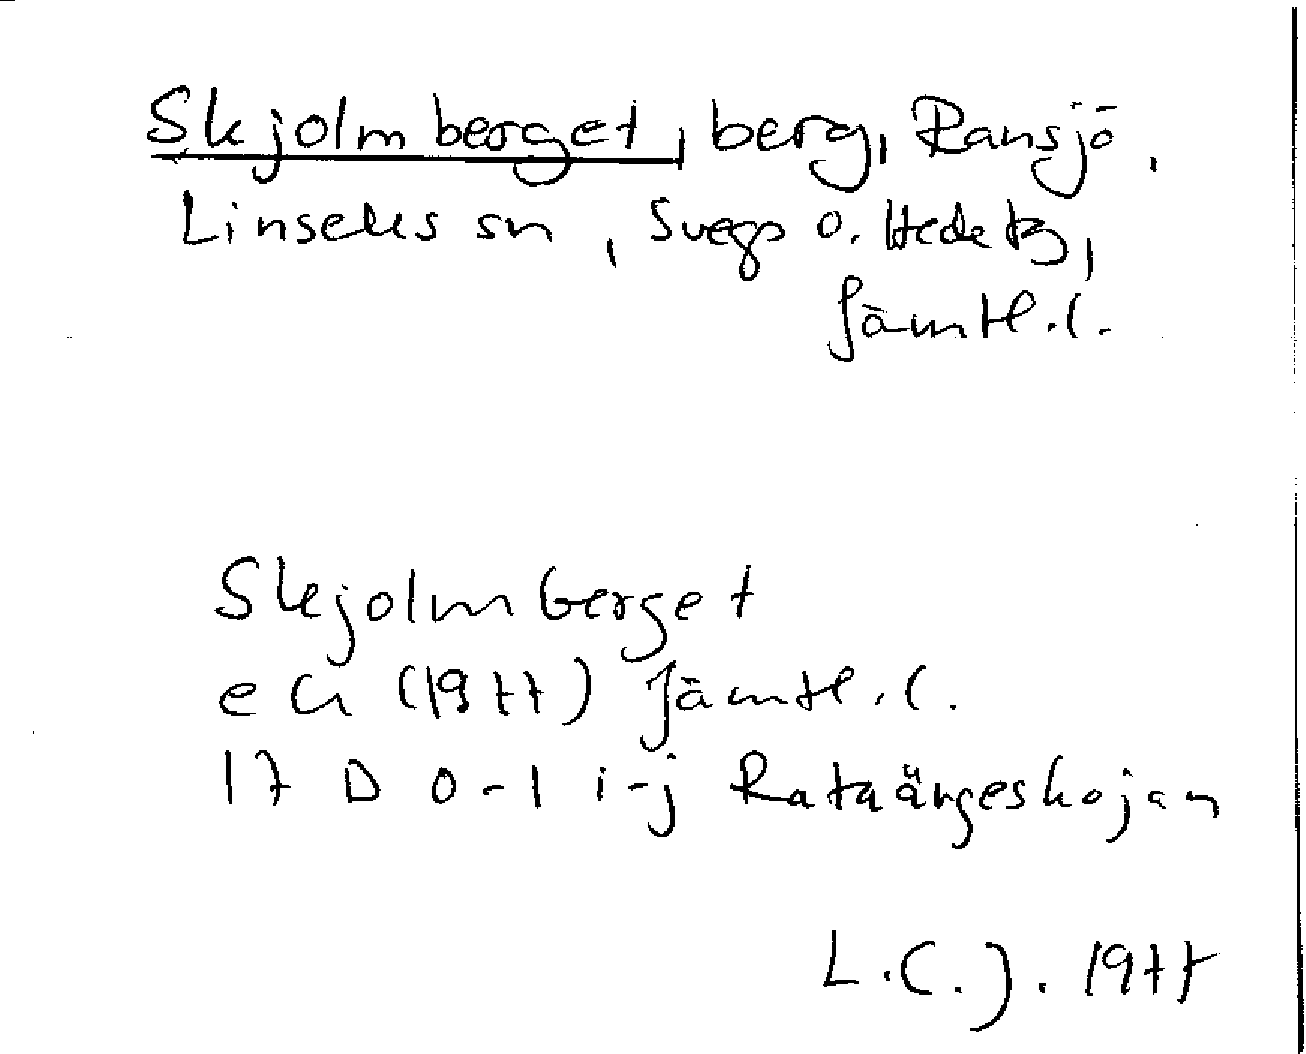 Skjolmberget, berg, Ransjö,
Linsells sn, Svegs o. Hede tg,
Jämtl. l.
Skjolmberget
ek (1977) Jämtl. l.
17 D 0-1 i-j Rataängeskojan
L.C.J. 1977